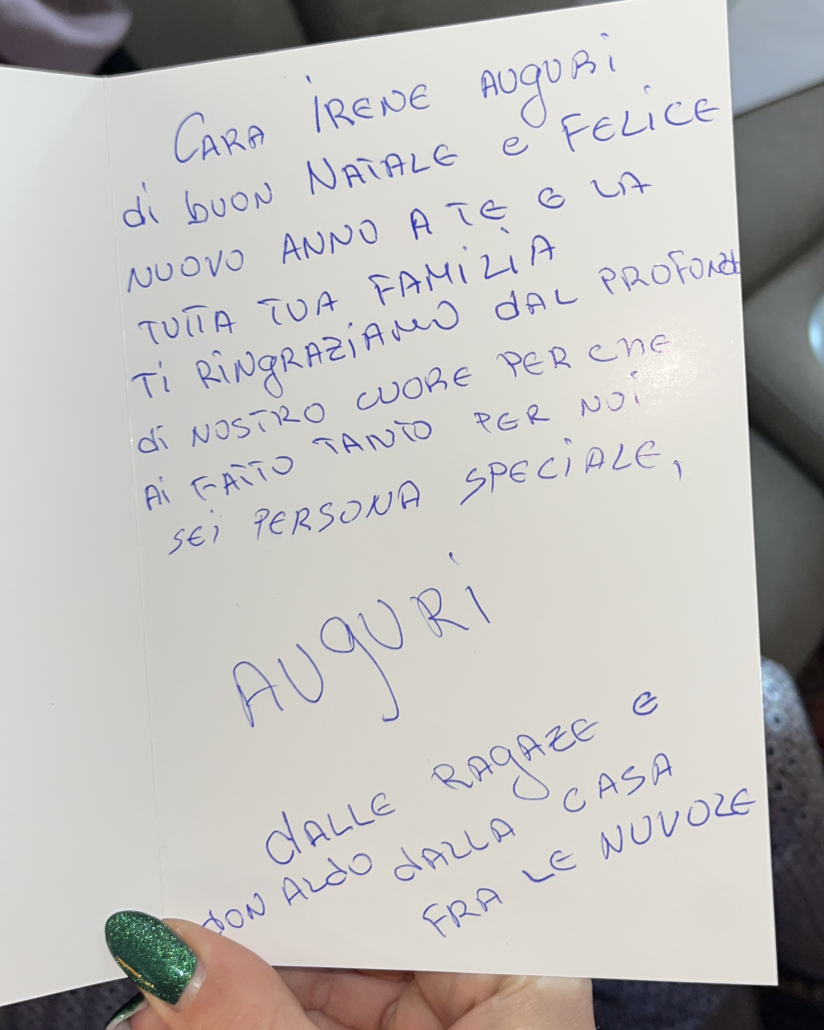 CARA IRENE AUGURI
di buon NATALE e FELICE
NUOVO ANNO A TE E LA
TUTTA TUA FAMILIA
Ti RINGRAZIAMO dAL PROFONdo
di NOSTRO CUORE PER CHE
Ai FATTO TANTO PER NOI
SEI PERSONA SPECIALE,
AUGURI
dALLE RAGAZE E
dON ALDO dALLA CASA
FRA LE NUVOLE